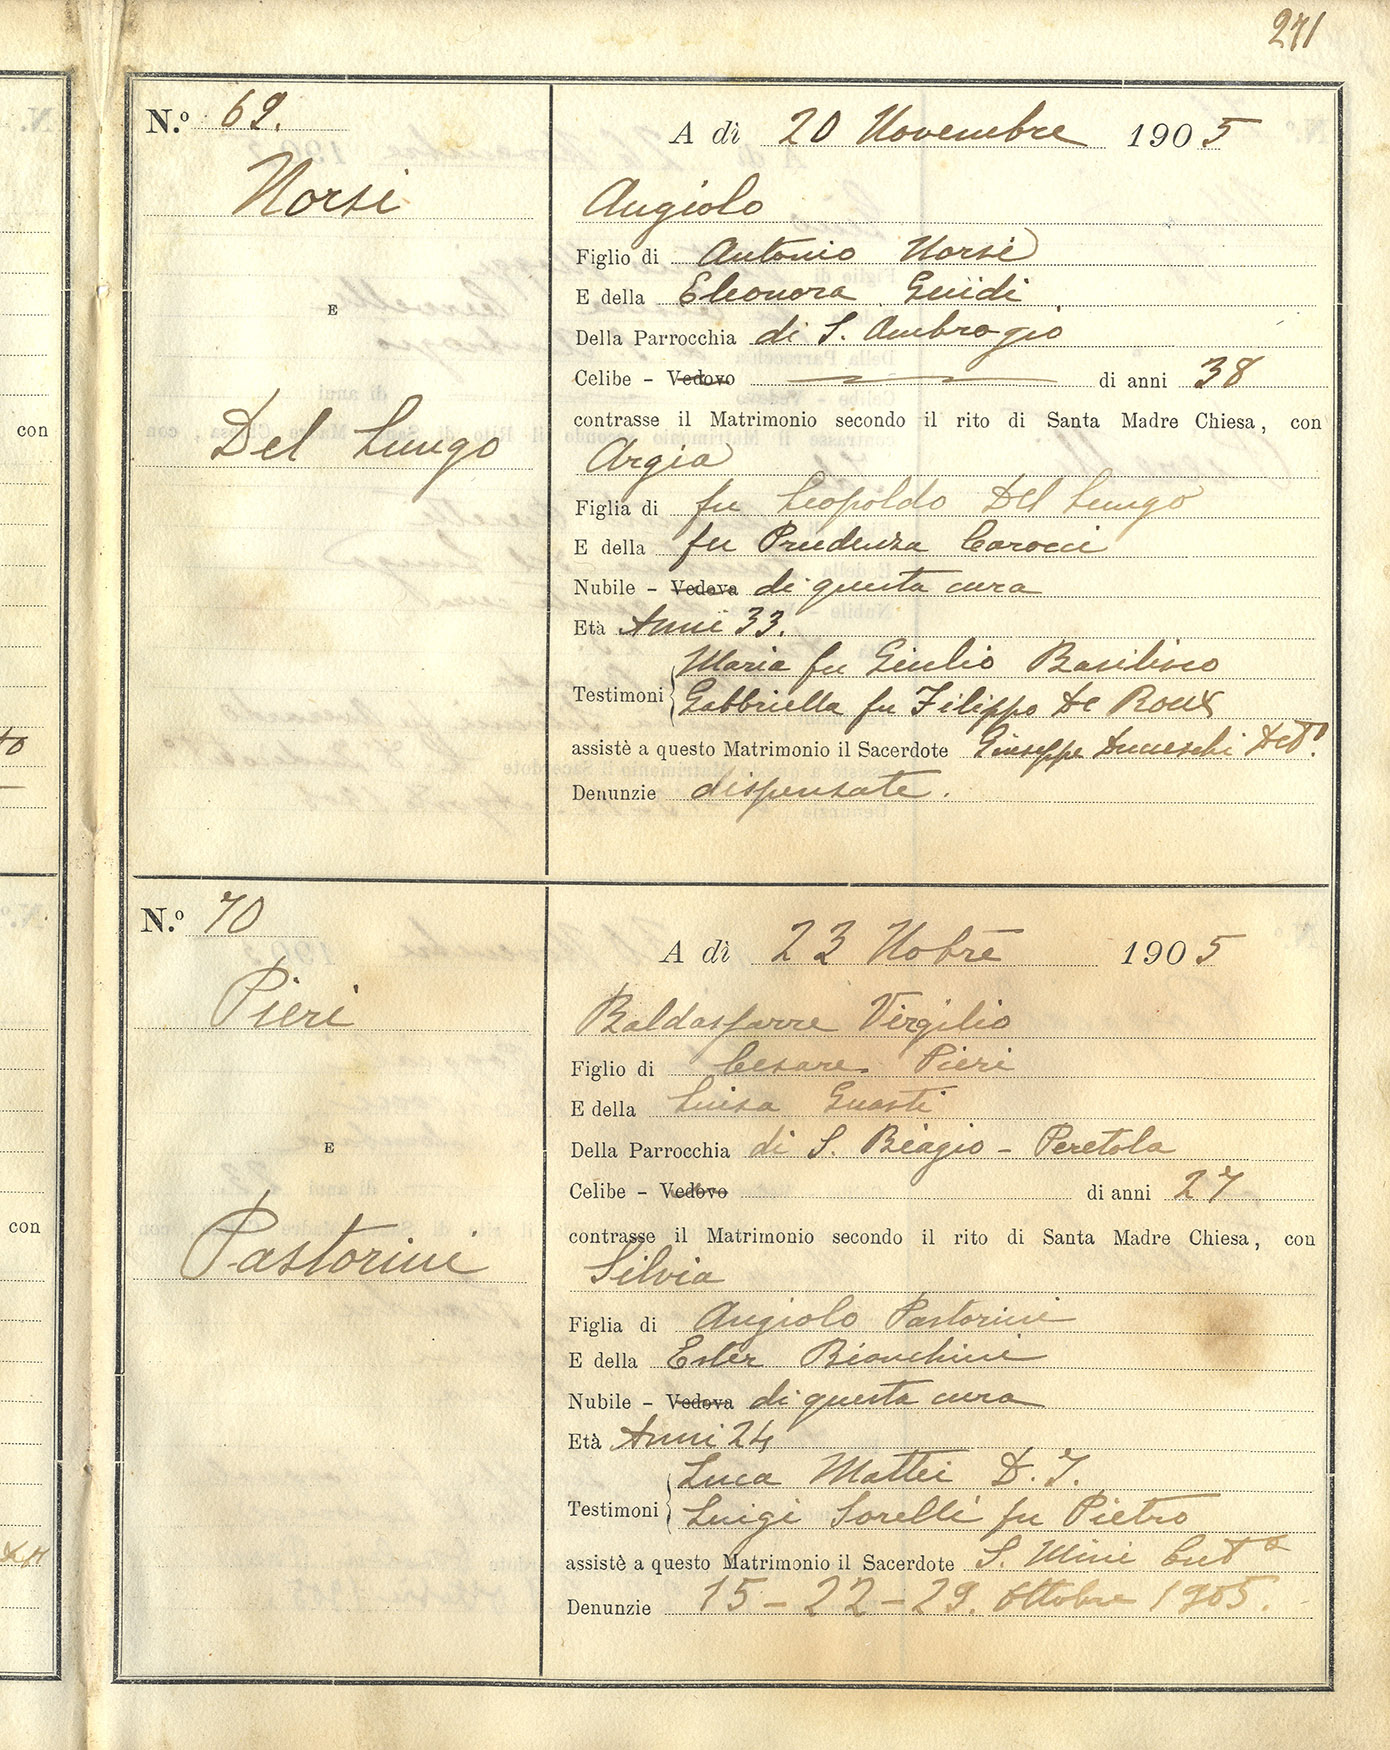 271
N.o 69.
Norsi
E
Del Lungo
A dì 20 Novembre 1905
Angiolo
Figlio di Antonio Norsi
E della Eleonora Guidi
Della Parrocchia di S. Ambrogio
Celibe - Vedovo di anni 38
contrasse il Matrimonio secondo il rito di Santa Madre Chiesa, con
Argia
Figlia di fu Leopoldo Del Lungo
E della fu Prudenza Carocci
Nubile - Vedova di questa cura
Età Anni 33.
Maria fu Giulio Basilisco
Testimoni
Gabbriella fu Filippo De Roux
assistè a questo Matrimonio il Sacerdote Giuseppe
Denunzie dispensate.
N.o 70
Pieri
E
Pastorini
A dì 23 Nobre 1905
Baldassarre Virgilio
Figlio di Cesare Pieri
E della Luisa Guasti
Della Parrocchia di S. Biagio - Peretola
Celibe - Vedovo di anni 27
contrasse il Matrimonio secondo il rito di Santa Madre Chiesa, con
Silvia
Figlia di Angiolo Pastorini
E della Ester Bianchini
Nubile - Vedova di questa cura
Età Anni 24
Luca Mattei D. J.
Testimoni
Luigi Sorelli fu Pietro
assistè a questo Matrimonio il Sacerdote S. Mini
Denunzie 15 - 22 - 29. Ottobre 1905.
con
con